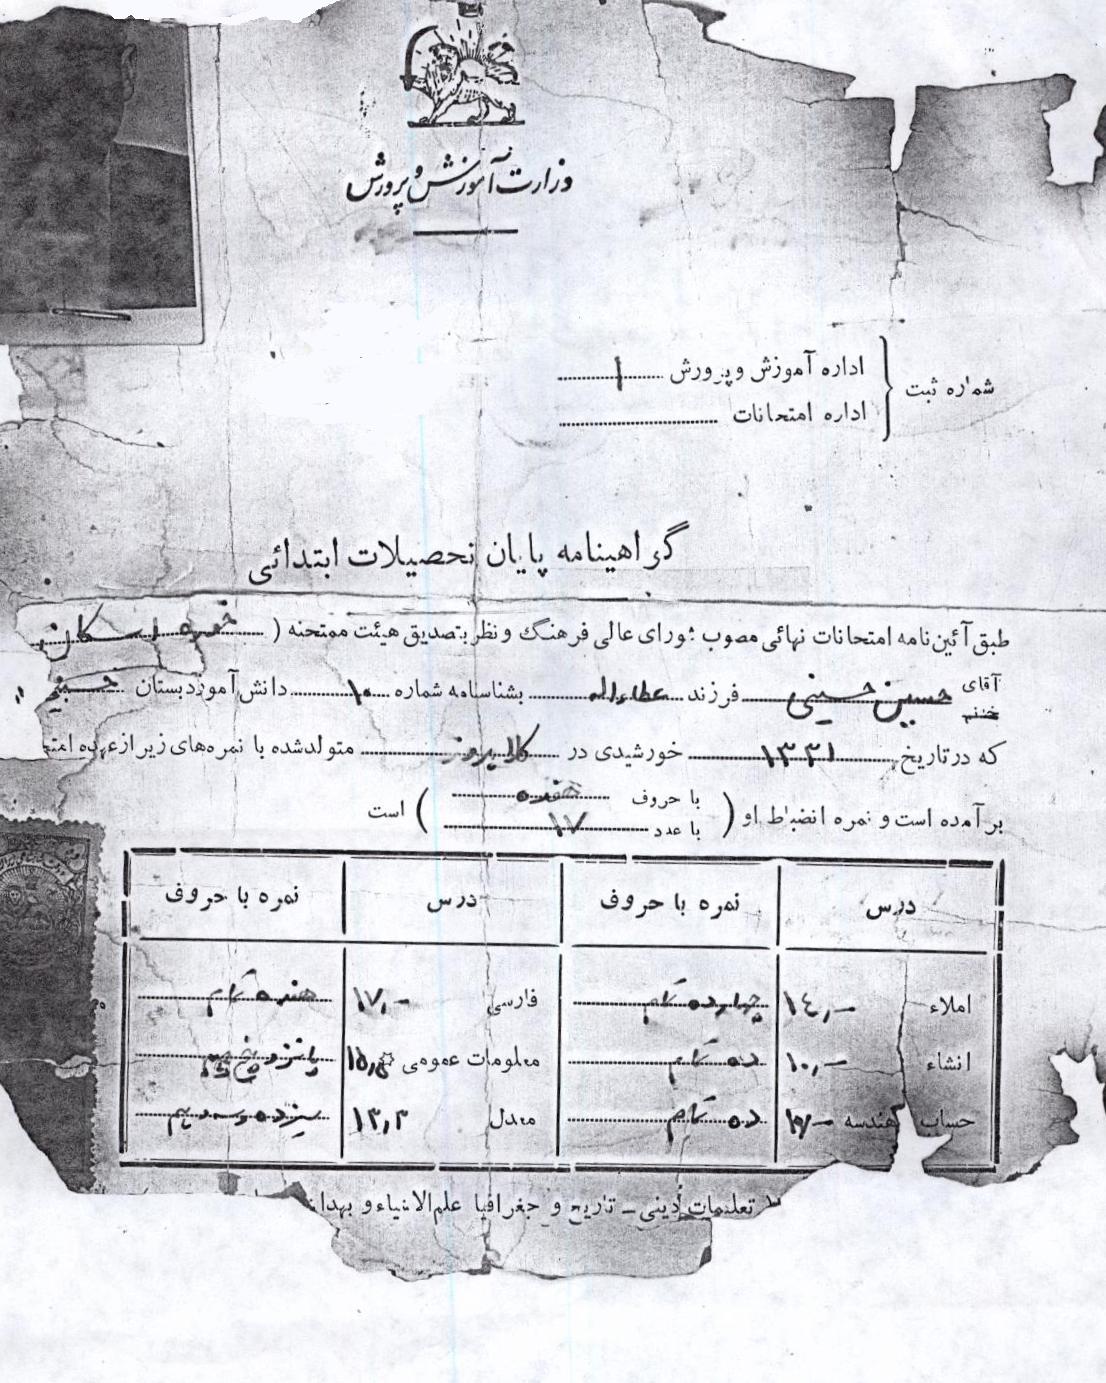 وزارت آموزش و پرورش
شماره ثبت
اداره آموزش و پرورش ۱
اداره امتحانات
گواهینامه پایان تحصیلات ابتدائی
طبق آئین نامه امتحانات نهائی مصوب شورای عالی فرهنگ و نظر بتصدیق هیئت ممتحنه (
آقای
خانم
حسین حسینی فرزند عطاءاله بشناسنامه شماره ۱۰ دانش آموز دبستان
که در تاریخ ۱۳۳۱ خورشیدی در متولد شده با نمره‌های زیر از عهده
بر آمده است و نمره انضباط او ( با حروف هفده
با عدد ۱۷ ) است
درس نمره با حروف درس نمره با حروف
املاء ۱۴,- چهارده تمام فارسی ۱۷,- هفده تمام
انشاء ۱۰,- ده تمام معلومات عمومی ۱۵,۵ پانزده
حساب هندسه ۱۰,- ده تمام معدل ۱۳,۳ سیزده و سه دهم
تعلیمات دینی ـ تاریخ و جغرافیا علم‌الاشیاء و